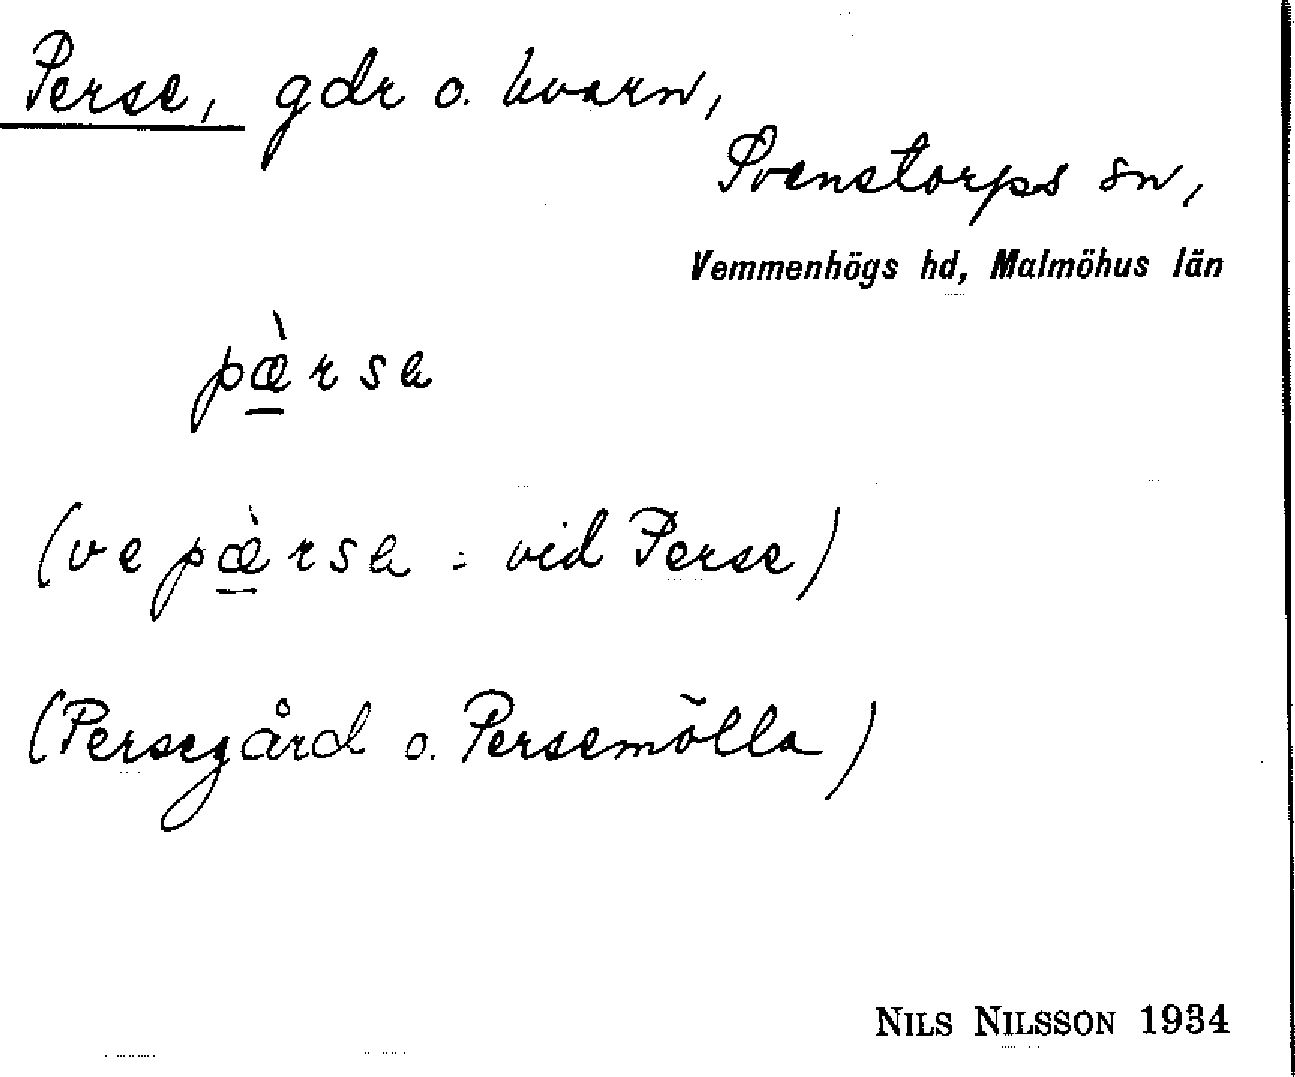 Perse, gdr o. kvarn,
Svenstorps sn,
Vemmenhögs hd, Malmöhus län
pæ̠̀rsə
(ve pæ̠̀rsə = vid Perse)
(Persegård o. Persemölla)
NILS NILSSON 1934